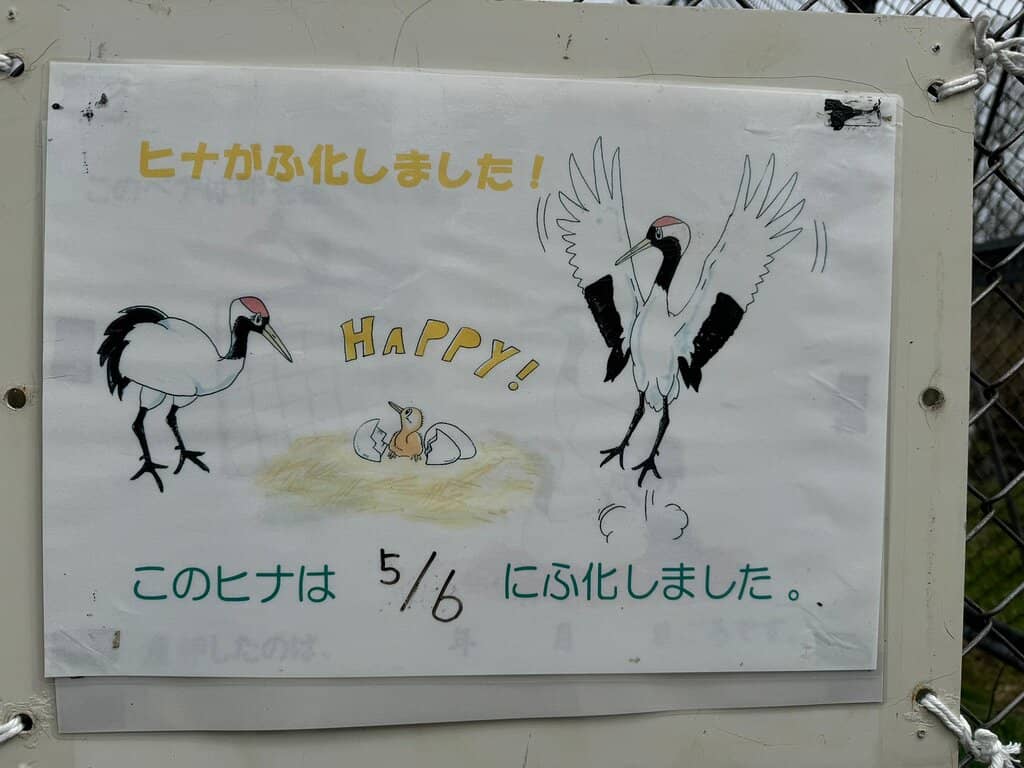 ヒナがふ化しました!
HAPPY!
このヒナは 5/6 にふ化しました。